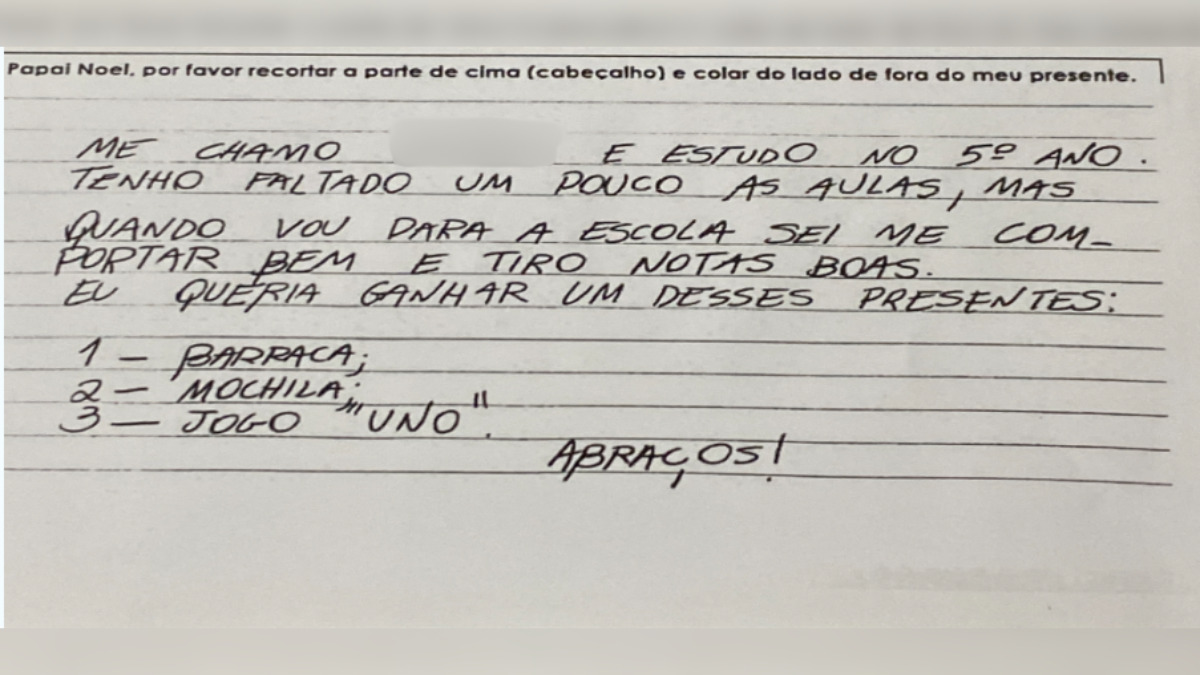 Papai Noel, por favor recortar a parte de cima (cabeçalho) e colar do lado de fora do meu presente.
ME CHAMO E ESTUDO NO 5º ANO.
TENHO FALTADO UM POUCO AS AULAS, MAS
QUANDO VOU PARA A ESCOLA SEI ME COM-
PORTAR BEM E TIRO NOTAS BOAS.
EU QUERIA GANHAR UM DESSES PRESENTES:
1 - BARRACA;
2 - MOCHILA;
3 - JOGO "UNO".
ABRAÇOS!